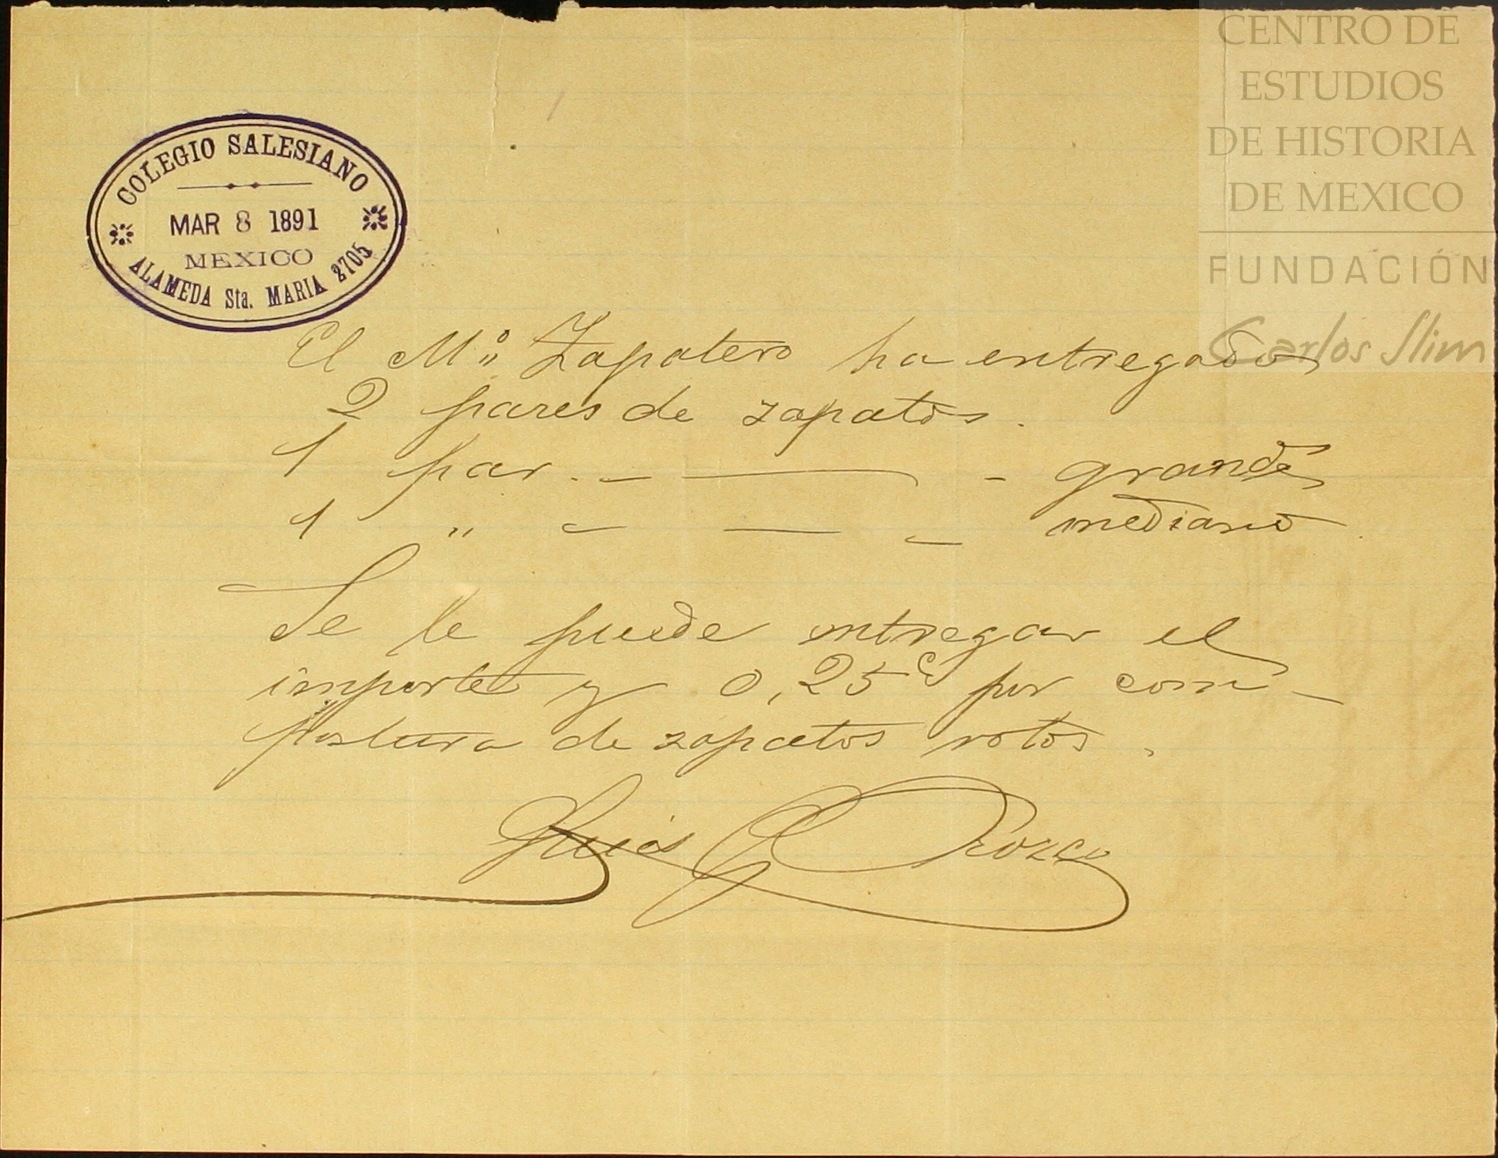 COLEGIO SALESIANO
MAR 8 1891
MEXICO
ALAMEDA Sta. MARIA 2705
CENTRO DE
ESTUDIOS
DE HISTORIA
DE MEXICO
FUNDACIÓN
Carlos Slim
El Mº Zapatero ha entregado
2 pares de zapatos.
1 par - — - grande
1 " - — - mediano
Se le puede entregar el
importe y 0,25c por com-
postura de zapatos rotos.
Luis G Orozco